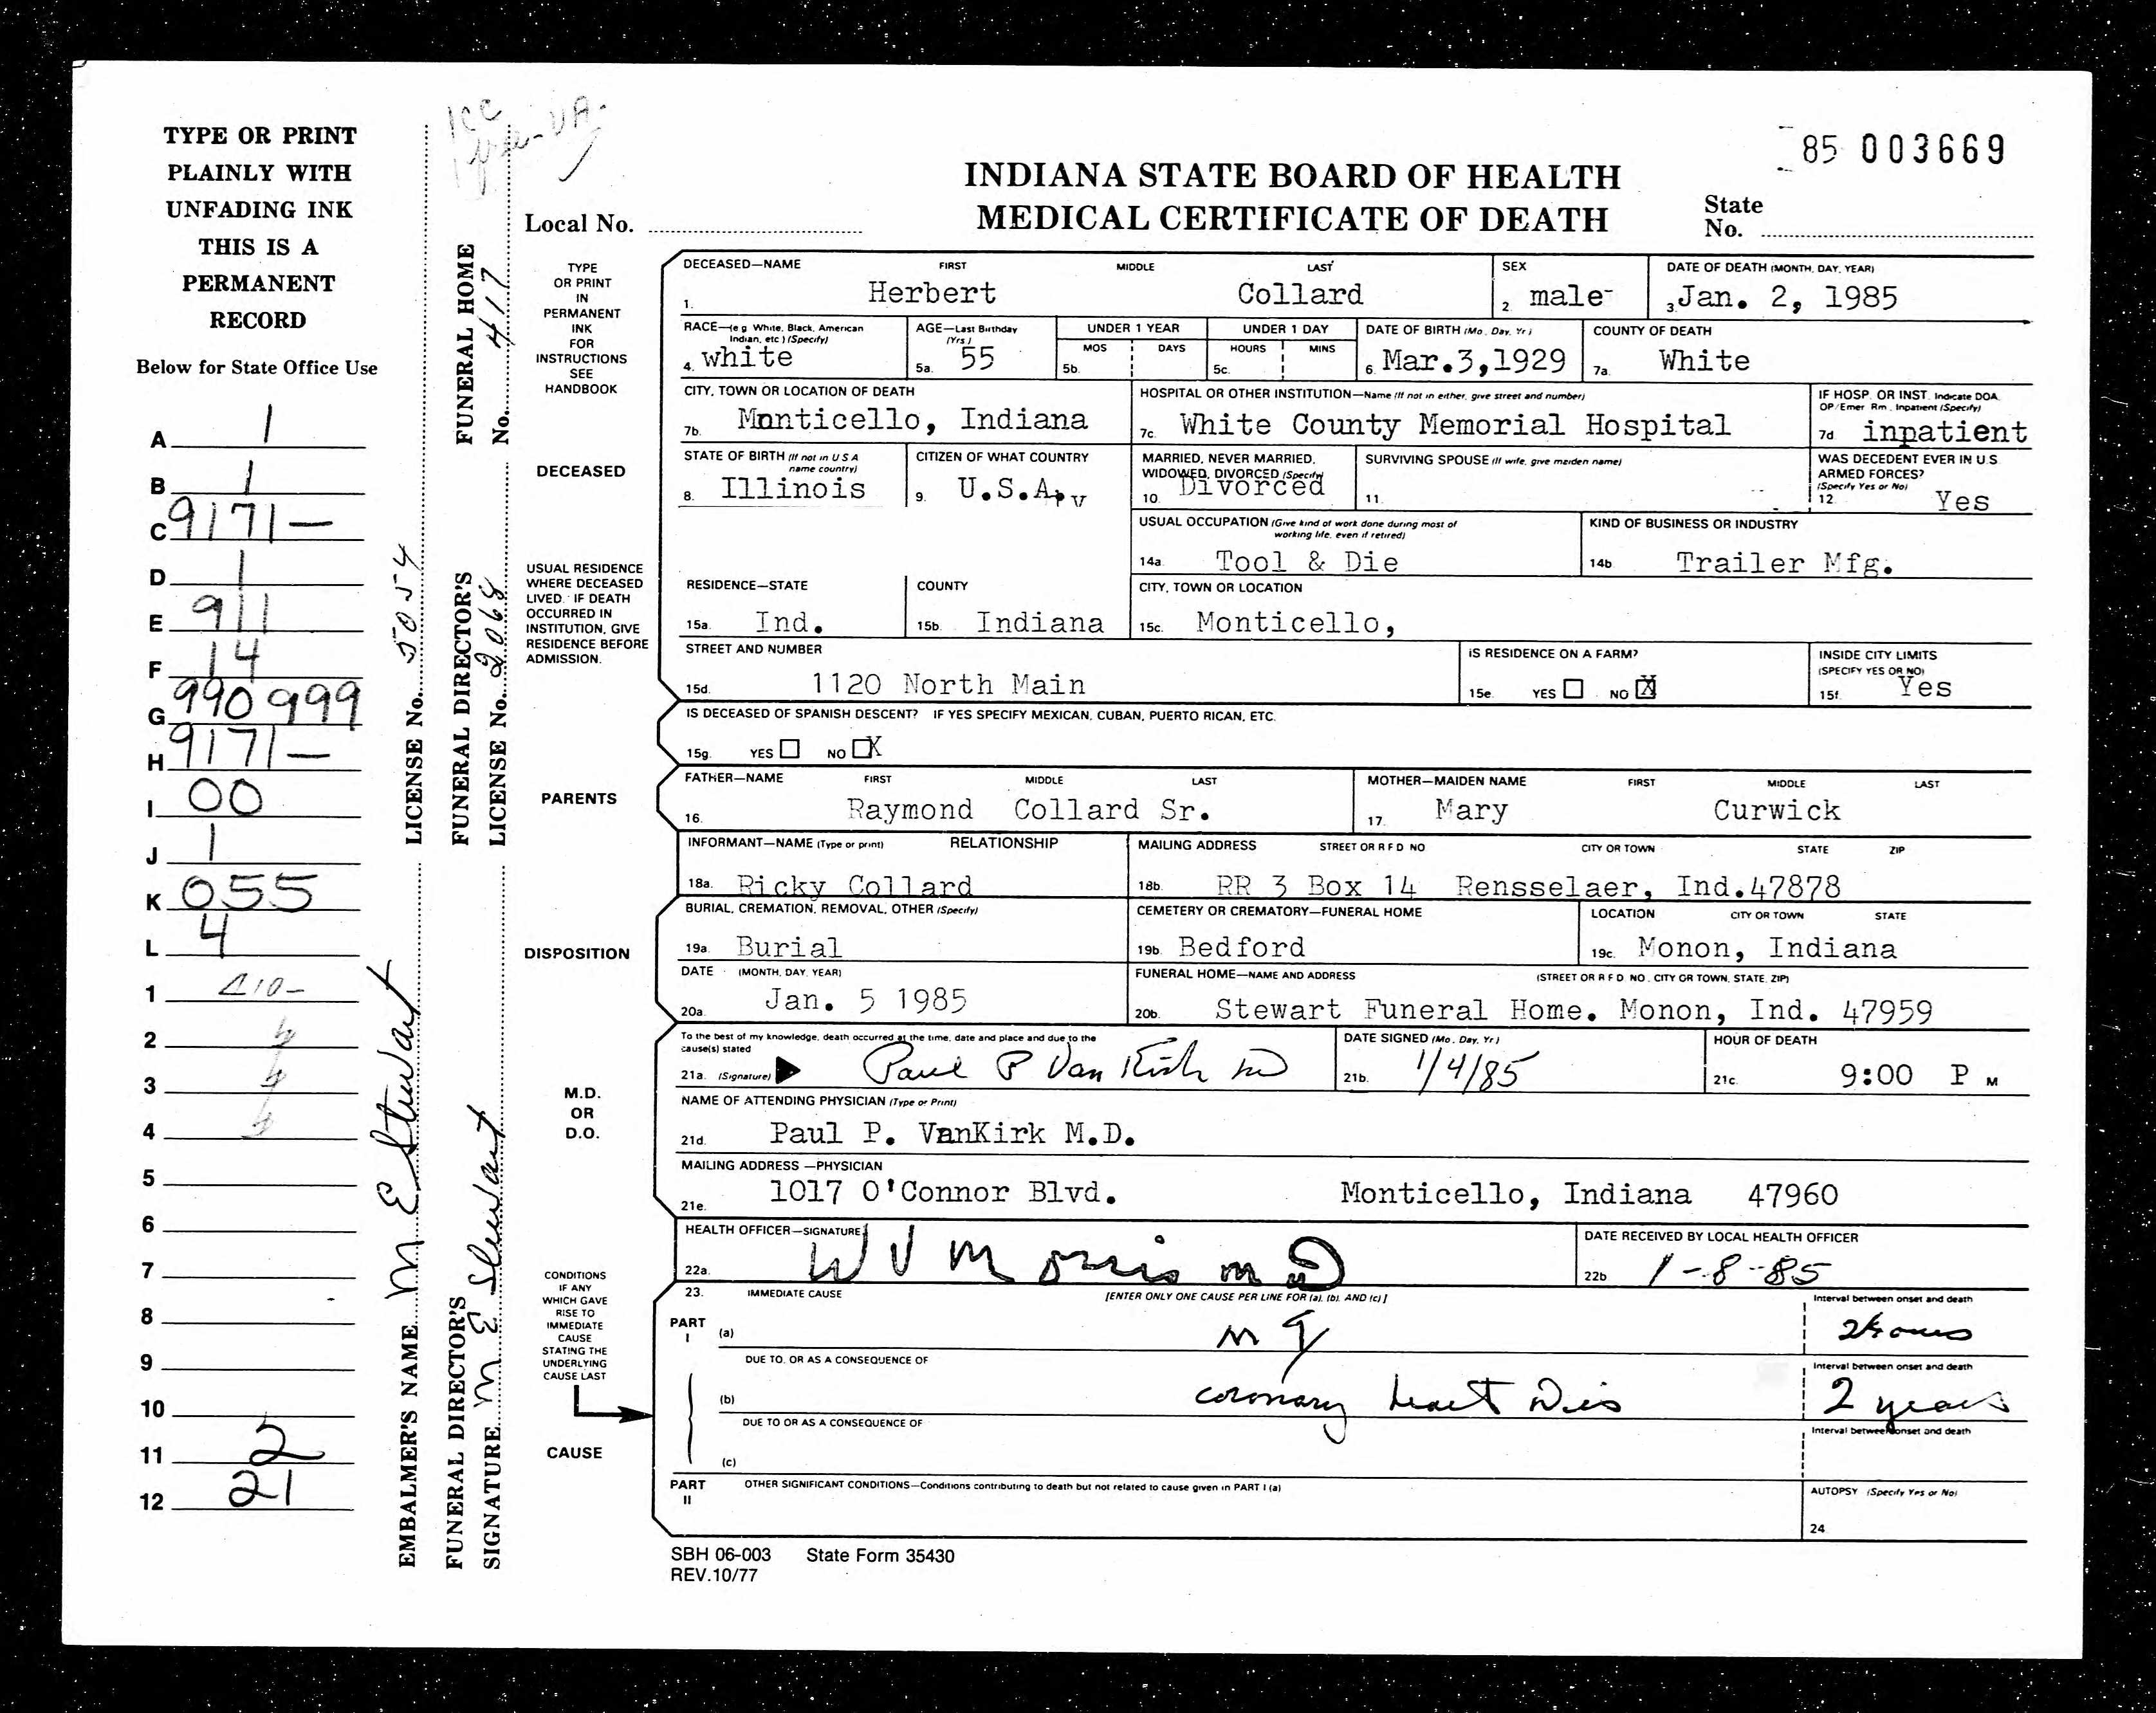 TYPE OR PRINT
PLAINLY WITH
UNFADING INK
THIS IS A
PERMANENT
RECORD
Below for State Office Use
A 1
B 1
C 9171-
D 1
E 911
F 14
G 990 999
H 9171-
I 00
J 1
K 055
L 4
1 410-
2
3
4
5
6
7
8
9
10
11 2
12 21
EMBALMER'S NAME M E Stewart LICENSE No. 5054
FUNERAL DIRECTOR'S SIGNATURE M E Stewart FUNERAL DIRECTOR'S LICENSE No. 2068 FUNERAL HOME No. 417
85 003669
INDIANA STATE BOARD OF HEALTH
MEDICAL CERTIFICATE OF DEATH
Local No.
State
No.
TYPE
OR PRINT
IN
PERMANENT
INK
FOR
INSTRUCTIONS
SEE
HANDBOOK
DECEASED—NAME FIRST MIDDLE LAST SEX DATE OF DEATH (MONTH, DAY, YEAR)
1. Herbert Collard 2. male 3. Jan. 2, 1985
RACE—(e g White, Black, American Indian, etc ) (Specify) AGE—Last Birthday (Yrs.) UNDER 1 YEAR UNDER 1 DAY DATE OF BIRTH (Mo., Day, Yr.) COUNTY OF DEATH
MOS DAYS HOURS MINS
4. white 5a. 55 5b. 5c. 6. Mar.3,1929 7a. White
CITY, TOWN OR LOCATION OF DEATH HOSPITAL OR OTHER INSTITUTION—Name (If not in either, give street and number) IF HOSP. OR INST. Indicate DOA, OP/Emer Rm., Inpatient (Specify)
7b. Monticello, Indiana 7c. White County Memorial Hospital 7d inpatient
DECEASED
STATE OF BIRTH (If not in U S A name country) CITIZEN OF WHAT COUNTRY MARRIED, NEVER MARRIED, WIDOWED, DIVORCED (Specify) SURVIVING SPOUSE (If wife, give maiden name) WAS DECEDENT EVER IN U.S. ARMED FORCES? (Specify Yes or No)
8. Illinois 9. U.S.A. 10. Divorced 11. 12. Yes
USUAL OCCUPATION (Give kind of work done during most of working life, even if retired) KIND OF BUSINESS OR INDUSTRY
14a. Tool & Die 14b. Trailer Mfg.
USUAL RESIDENCE
WHERE DECEASED
LIVED. IF DEATH
OCCURRED IN
INSTITUTION, GIVE
RESIDENCE BEFORE
ADMISSION.
RESIDENCE—STATE COUNTY CITY, TOWN OR LOCATION
15a. Ind. 15b. Indiana 15c. Monticello,
STREET AND NUMBER IS RESIDENCE ON A FARM? INSIDE CITY LIMITS (SPECIFY YES OR NO)
15d. 1120 North Main 15e. YES NO X 15f. Yes
IS DECEASED OF SPANISH DESCENT? IF YES SPECIFY MEXICAN, CUBAN, PUERTO RICAN, ETC.
15g. YES NO X
PARENTS
FATHER—NAME FIRST MIDDLE LAST MOTHER—MAIDEN NAME FIRST MIDDLE LAST
16. Raymond Collard Sr. 17. Mary Curwick
INFORMANT—NAME (Type or print) RELATIONSHIP MAILING ADDRESS STREET OR R F D NO CITY OR TOWN STATE ZIP
18a. Ricky Collard 18b. RR 3 Box 14 Rensselaer, Ind.47878
DISPOSITION
BURIAL, CREMATION, REMOVAL, OTHER (Specify) CEMETERY OR CREMATORY—FUNERAL HOME LOCATION CITY OR TOWN STATE
19a. Burial 19b. Bedford 19c. Monon, Indiana
DATE (MONTH, DAY, YEAR) FUNERAL HOME—NAME AND ADDRESS (STREET OR R F D. NO., CITY OR TOWN, STATE, ZIP)
20a. Jan. 5 1985 20b. Stewart Funeral Home. Monon, Ind. 47959
M.D.
OR
D.O.
To the best of my knowledge, death occurred at the time, date and place and due to the cause(s) stated DATE SIGNED (Mo., Day, Yr.) HOUR OF DEATH
21a. (Signature) Paul P Van Kirk MD 21b. 1/4/85 21c. 9:00 P M
NAME OF ATTENDING PHYSICIAN (Type or Print)
21d. Paul P. VanKirk M.D.
MAILING ADDRESS—PHYSICIAN
21e. 1017 O'Connor Blvd. Monticello, Indiana 47960
HEALTH OFFICER—SIGNATURE DATE RECEIVED BY LOCAL HEALTH OFFICER
22a. W V Morris MD 22b 1-8-85
CONDITIONS
IF ANY
WHICH GAVE
RISE TO
IMMEDIATE
CAUSE
STATING THE
UNDERLYING
CAUSE LAST
CAUSE
23. IMMEDIATE CAUSE [ENTER ONLY ONE CAUSE PER LINE FOR (a), (b), AND (c)] Interval between onset and death
PART I (a)
DUE TO, OR AS A CONSEQUENCE OF Interval between onset and death
(b) coronary heart Dis 2 years
DUE TO OR AS A CONSEQUENCE OF Interval between onset and death
(c)
PART II OTHER SIGNIFICANT CONDITIONS—Conditions contributing to death but not related to cause given in PART I (a) AUTOPSY (Specify Yes or No)
24
SBH 06-003 State Form 35430
REV.10/77